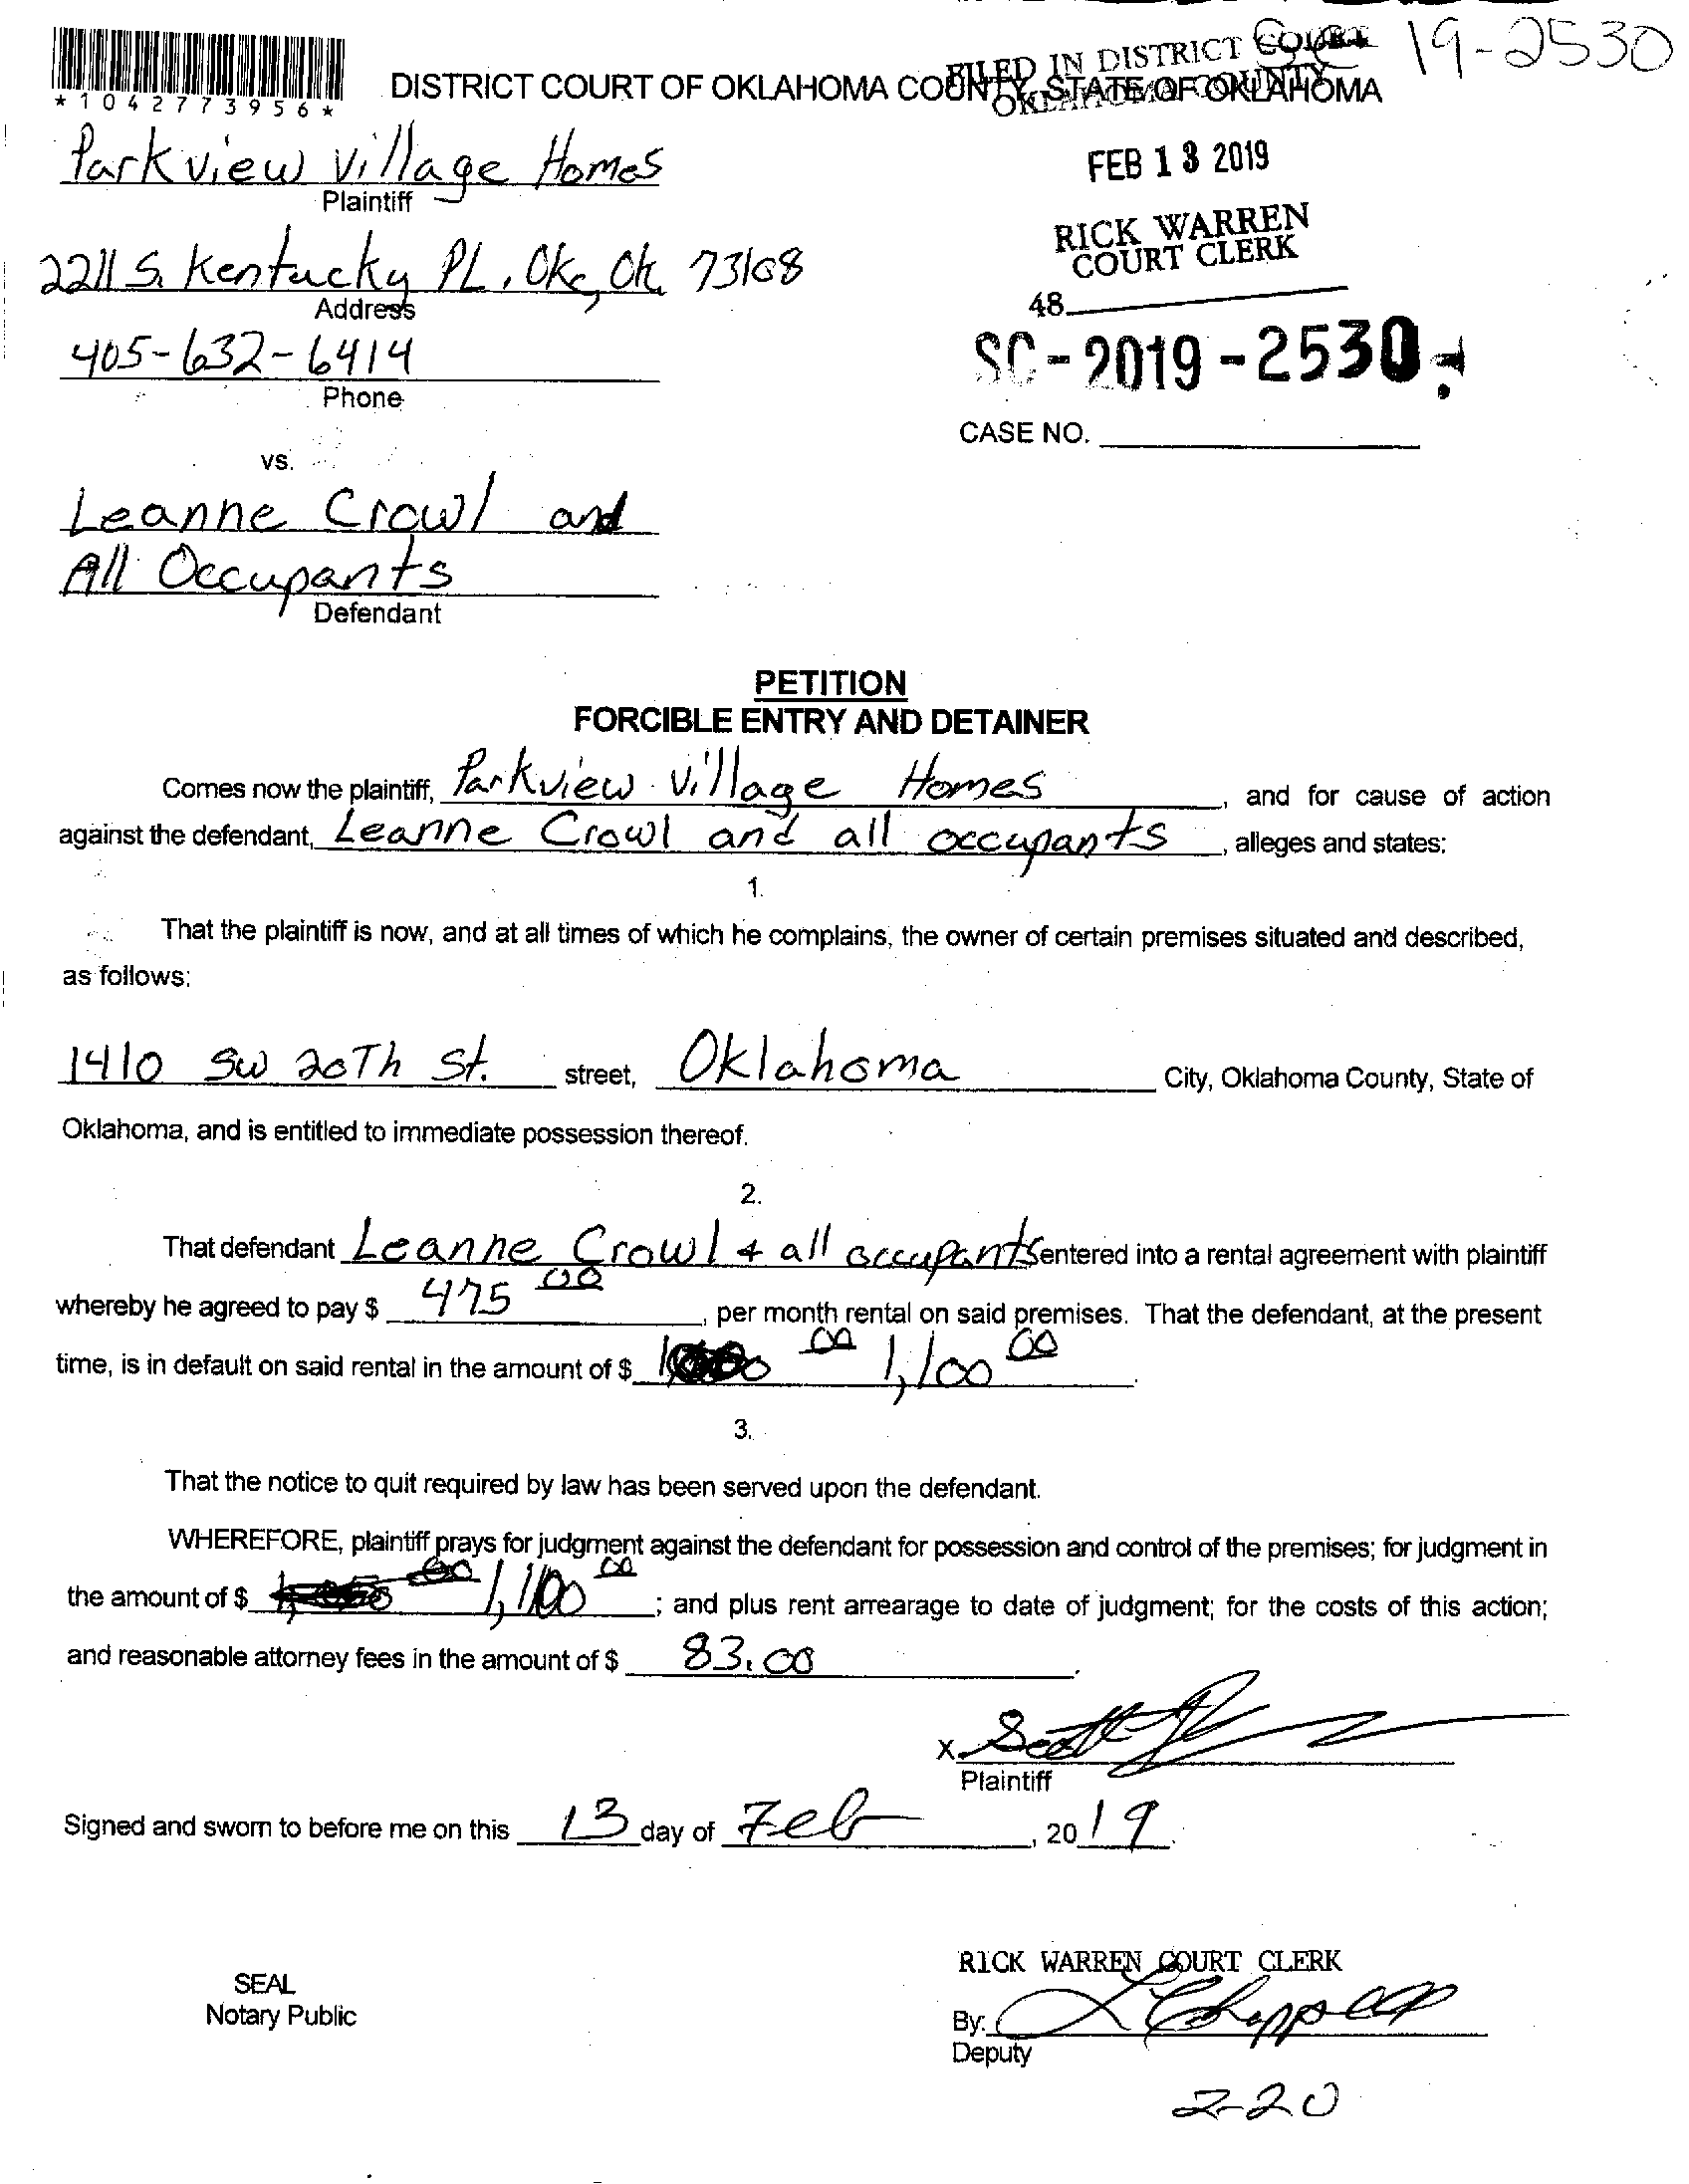 19-2530
FILED IN DISTRICT COURT
OKLAHOMA COUNTY
*1042773956*
DISTRICT COURT OF OKLAHOMA COUNTY, STATE OF OKLAHOMA
Parkview Village Homes
Plaintiff
FEB 13 2019
RICK WARREN
COURT CLERK
2211 S. Kentucky PL, Okc, Ok 73108
Address
48
405-632-6414
Phone
SC-2019-2530
CASE NO.
vs.
Leanne Crowl and
All Occupants
Defendant
PETITION
FORCIBLE ENTRY AND DETAINER
Comes now the plaintiff, Parkview Village Homes, and for cause of action
against the defendant, Leanne Crowl and all occupants, alleges and states:
1.
That the plaintiff is now, and at all times of which he complains, the owner of certain premises situated and described,
as follows:
1410 SW 20Th St. street, Oklahoma City, Oklahoma County, State of
Oklahoma, and is entitled to immediate possession thereof.
2.
That defendant Leanne Crowl + all occupants entered into a rental agreement with plaintiff
whereby he agreed to pay $ 475 00, per month rental on said premises. That the defendant, at the present
time, is in default on said rental in the amount of $ 00 1,100 00.
3.
That the notice to quit required by law has been served upon the defendant.
WHEREFORE, plaintiff prays for judgment against the defendant for possession and control of the premises; for judgment in
the amount of $ 1,100 00; and plus rent arrearage to date of judgment; for the costs of this action;
and reasonable attorney fees in the amount of $ 83.00.
X Scott
Plaintiff
Signed and sworn to before me on this 13 day of Feb, 2019.
RICK WARREN COURT CLERK
SEAL
Notary Public
By:
Deputy
2-20